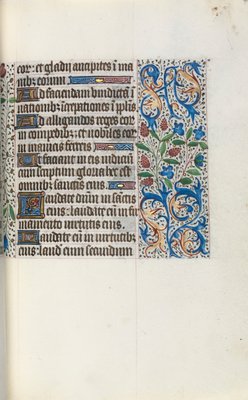 cor: et gladij ancipites in ma
nibz eorum
Ad faciendam vindictā ī
nationibz īcrepationes ī pplis.
Ad alligandos reges eor
in compedibz: et nobiles eor
in manicis ferreis
Ut faciant in eis iudiciū
conscriptum gloria hec est
omnibz sanctis eius.
Laudate dnm in sāctis
eius: laudate eū in fir
mamento virtutis eius.
Laudate eū in virtutibz
eius: laud eum secundum